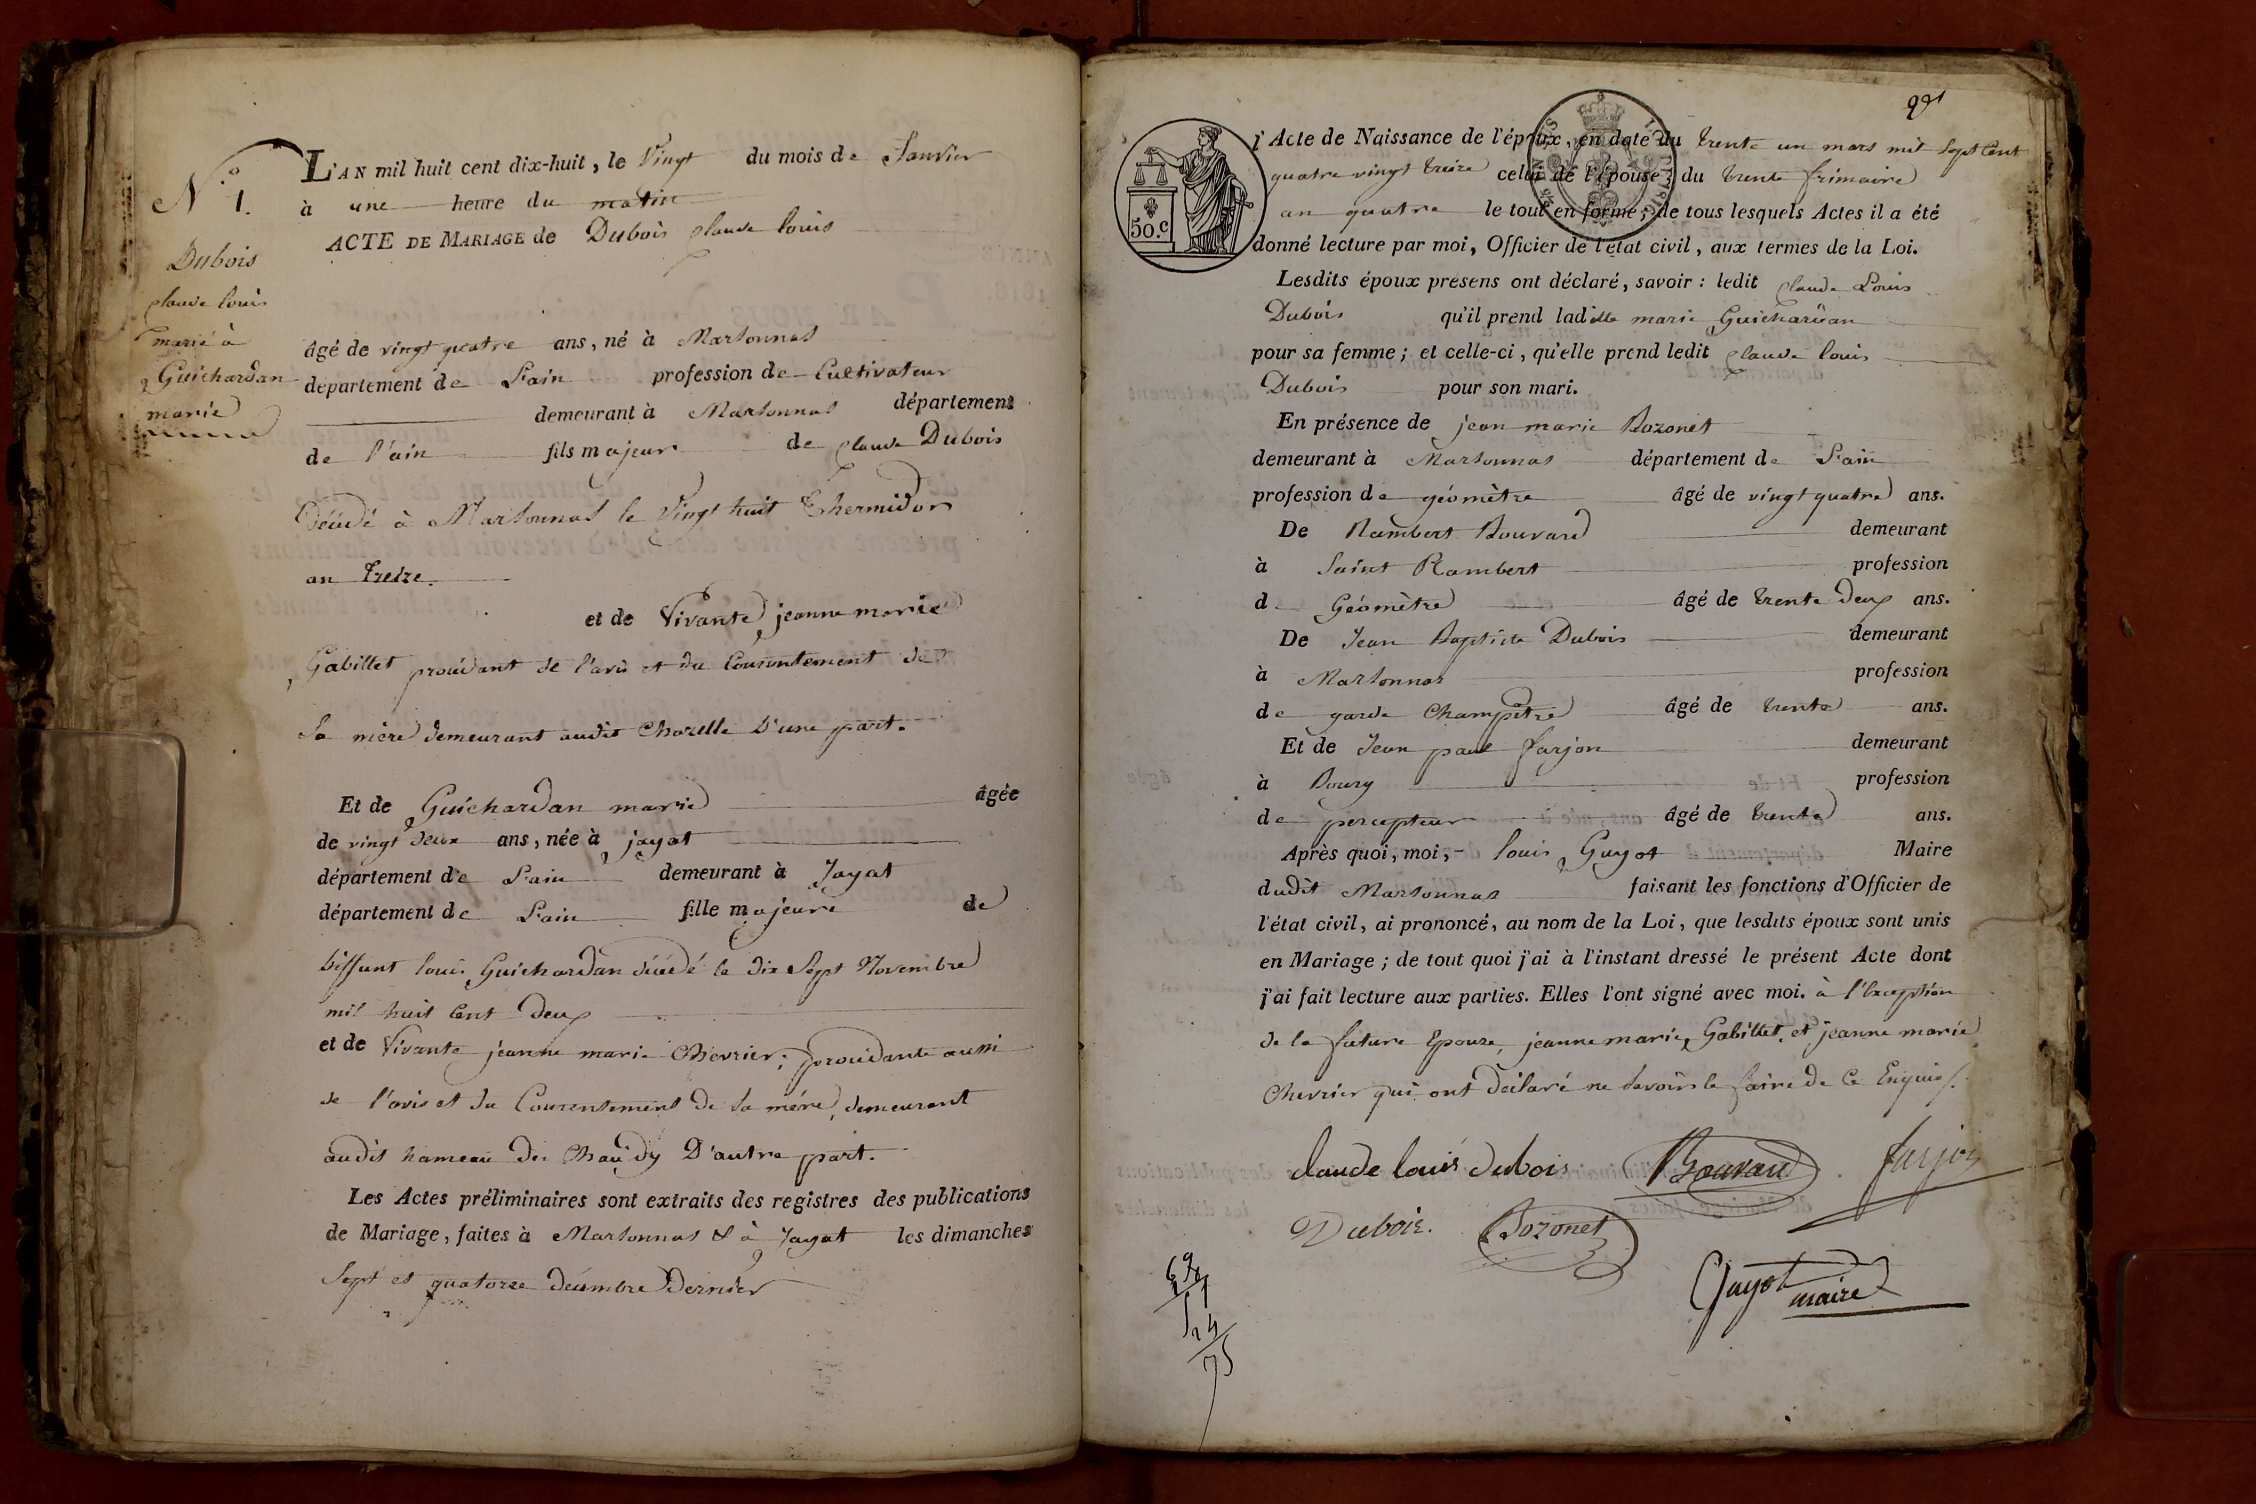 N.º 1.
Dubois
claude louis
marié à
Guichardan
marie
L'AN mil huit cent dix-huit, le Vingt du mois de Janvier
à une heure du matin
ACTE DE MARIAGE de Dubois claude louis
âgé de vingt quatre ans, né à Marsonnas
département de L'ain profession de Cultivateur
demeurant à Marsonnas département
de l'ain fils majeur de claude Dubois
Décédé à Marsonnas le Vingt huit Thermidor
an Treize.
et de Vivante jeanne marie
Gabillet procédant de l'avis et du Consentement de
sa mère demeurant audit Charelle D'une part.
Et de Guichardan marie âgée
de vingt deux ans, née à jayat
département de L'ain demeurant à Jayat
département de L'ain fille majeure de
deffunt louis Guichardan décédé le dix Sept Novembre
mil huit Cent Deux
et de Vivante jeanne marie Chevrier; procédante aussi
de l'avis et du Consentement de sa mère, demeurant
audit hameau de D'autre part.
Les Actes préliminaires sont extraits des registres des publications
de Mariage, faites à Marsonnas & à Jayat les dimanches
Sept et quatorze décembre Dernier
99
50.c
l'Acte de Naissance de l'époux, en date du trente un mars mil Sept Cent
quatre vingt treize celui de l'épouse, du trente frimaire
an quatre le tout en forme; de tous lesquels Actes il a été
donné lecture par moi, Officier de l'état civil, aux termes de la Loi.
Lesdits époux présens ont déclaré, savoir: ledit claude Louis
Dubois qu'il prend ladite marie Guichardan
pour sa femme; et celle-ci, qu'elle prend ledit claude louis
Dubois pour son mari.
En présence de jean marie Bozonet
demeurant à Marsonnas département de L'ain
profession de géomètre âgé de vingt quatre ans.
De Rambert Bouvard demeurant
à Saint Rambert profession
de Géomètre âgé de trente deux ans.
De Jean Baptiste Dubois demeurant
à Marsonnas profession
de garde Champêtre âgé de trente ans.
Et de Jean paul farjon demeurant
à Bourg profession
de percepteur âgé de trente ans.
Après quoi, moi, louis Guyot Maire
dudit Marsonnas faisant les fonctions d'Officier de
l'état civil, ai prononcé, au nom de la Loi, que lesdits époux sont unis
en Mariage; de tout quoi j'ai à l'instant dressé le présent Acte dont
j'ai fait lecture aux parties. Elles l'ont signé avec moi. à l'Exception
de la future Epouze, jeanne marie Gabillet, et jeanne marie
Chevrier qui ont déclaré ne savoir le faire de ce Enquis.
claude louis dubois Bouvard farjon
Dubois. Bozonet
Guyot
maire